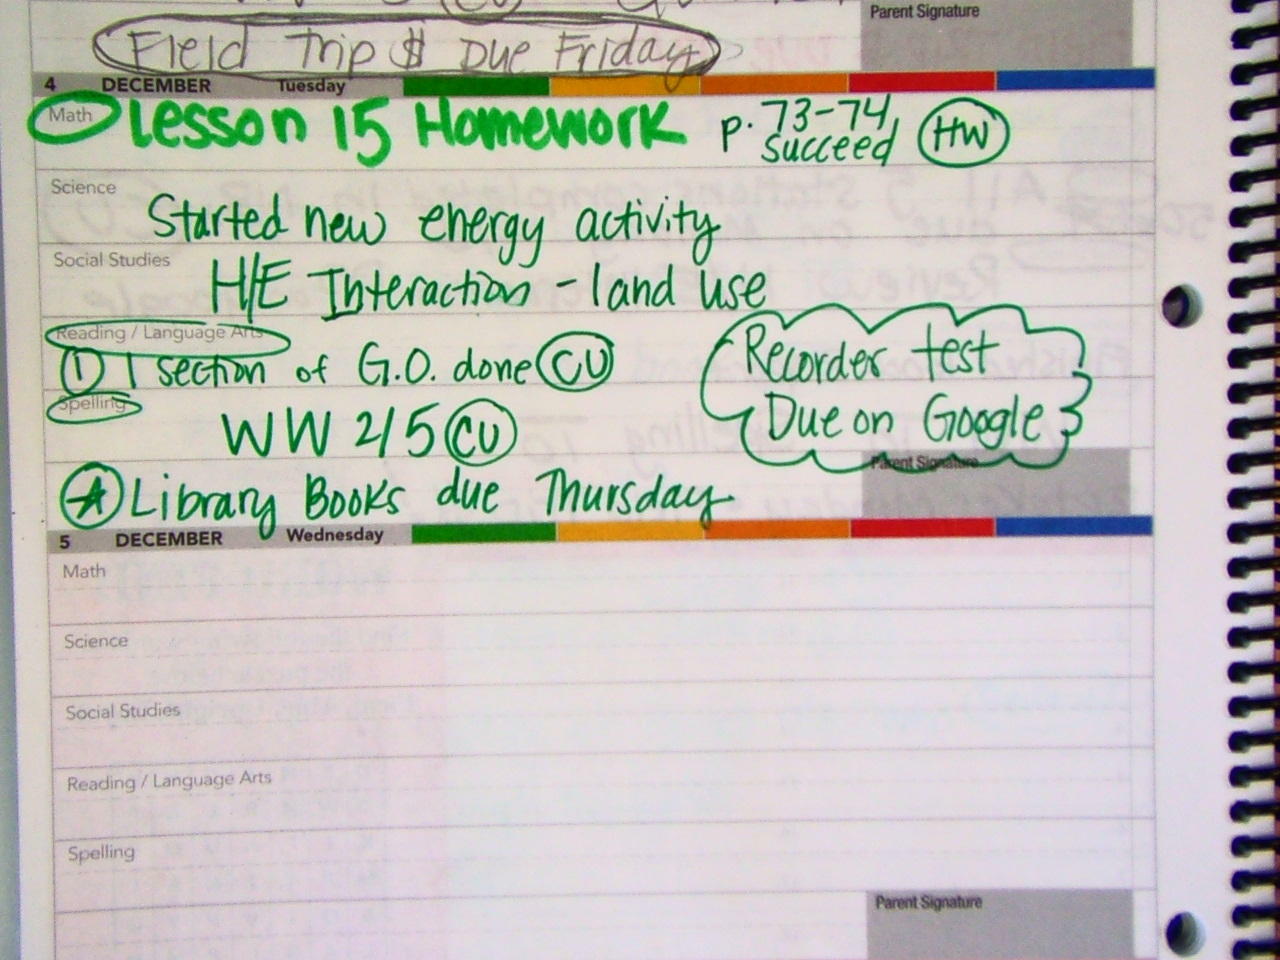 Parent Signature
Field Trip $ Due Friday
4 DECEMBER Tuesday
Math Lesson 15 Homework p. 73-74, succeed HW
Science
Started new energy activity
Social Studies
H/E Interaction - land use
Reading / Language Arts
① 1 section of G.O. done CU
Recorder test
Due on Google
Spelling
WW 2/5 CU
Parent Signature
Library Books due Thursday
5 DECEMBER Wednesday
Math
Science
Social Studies
Reading / Language Arts
Spelling
Parent Signature